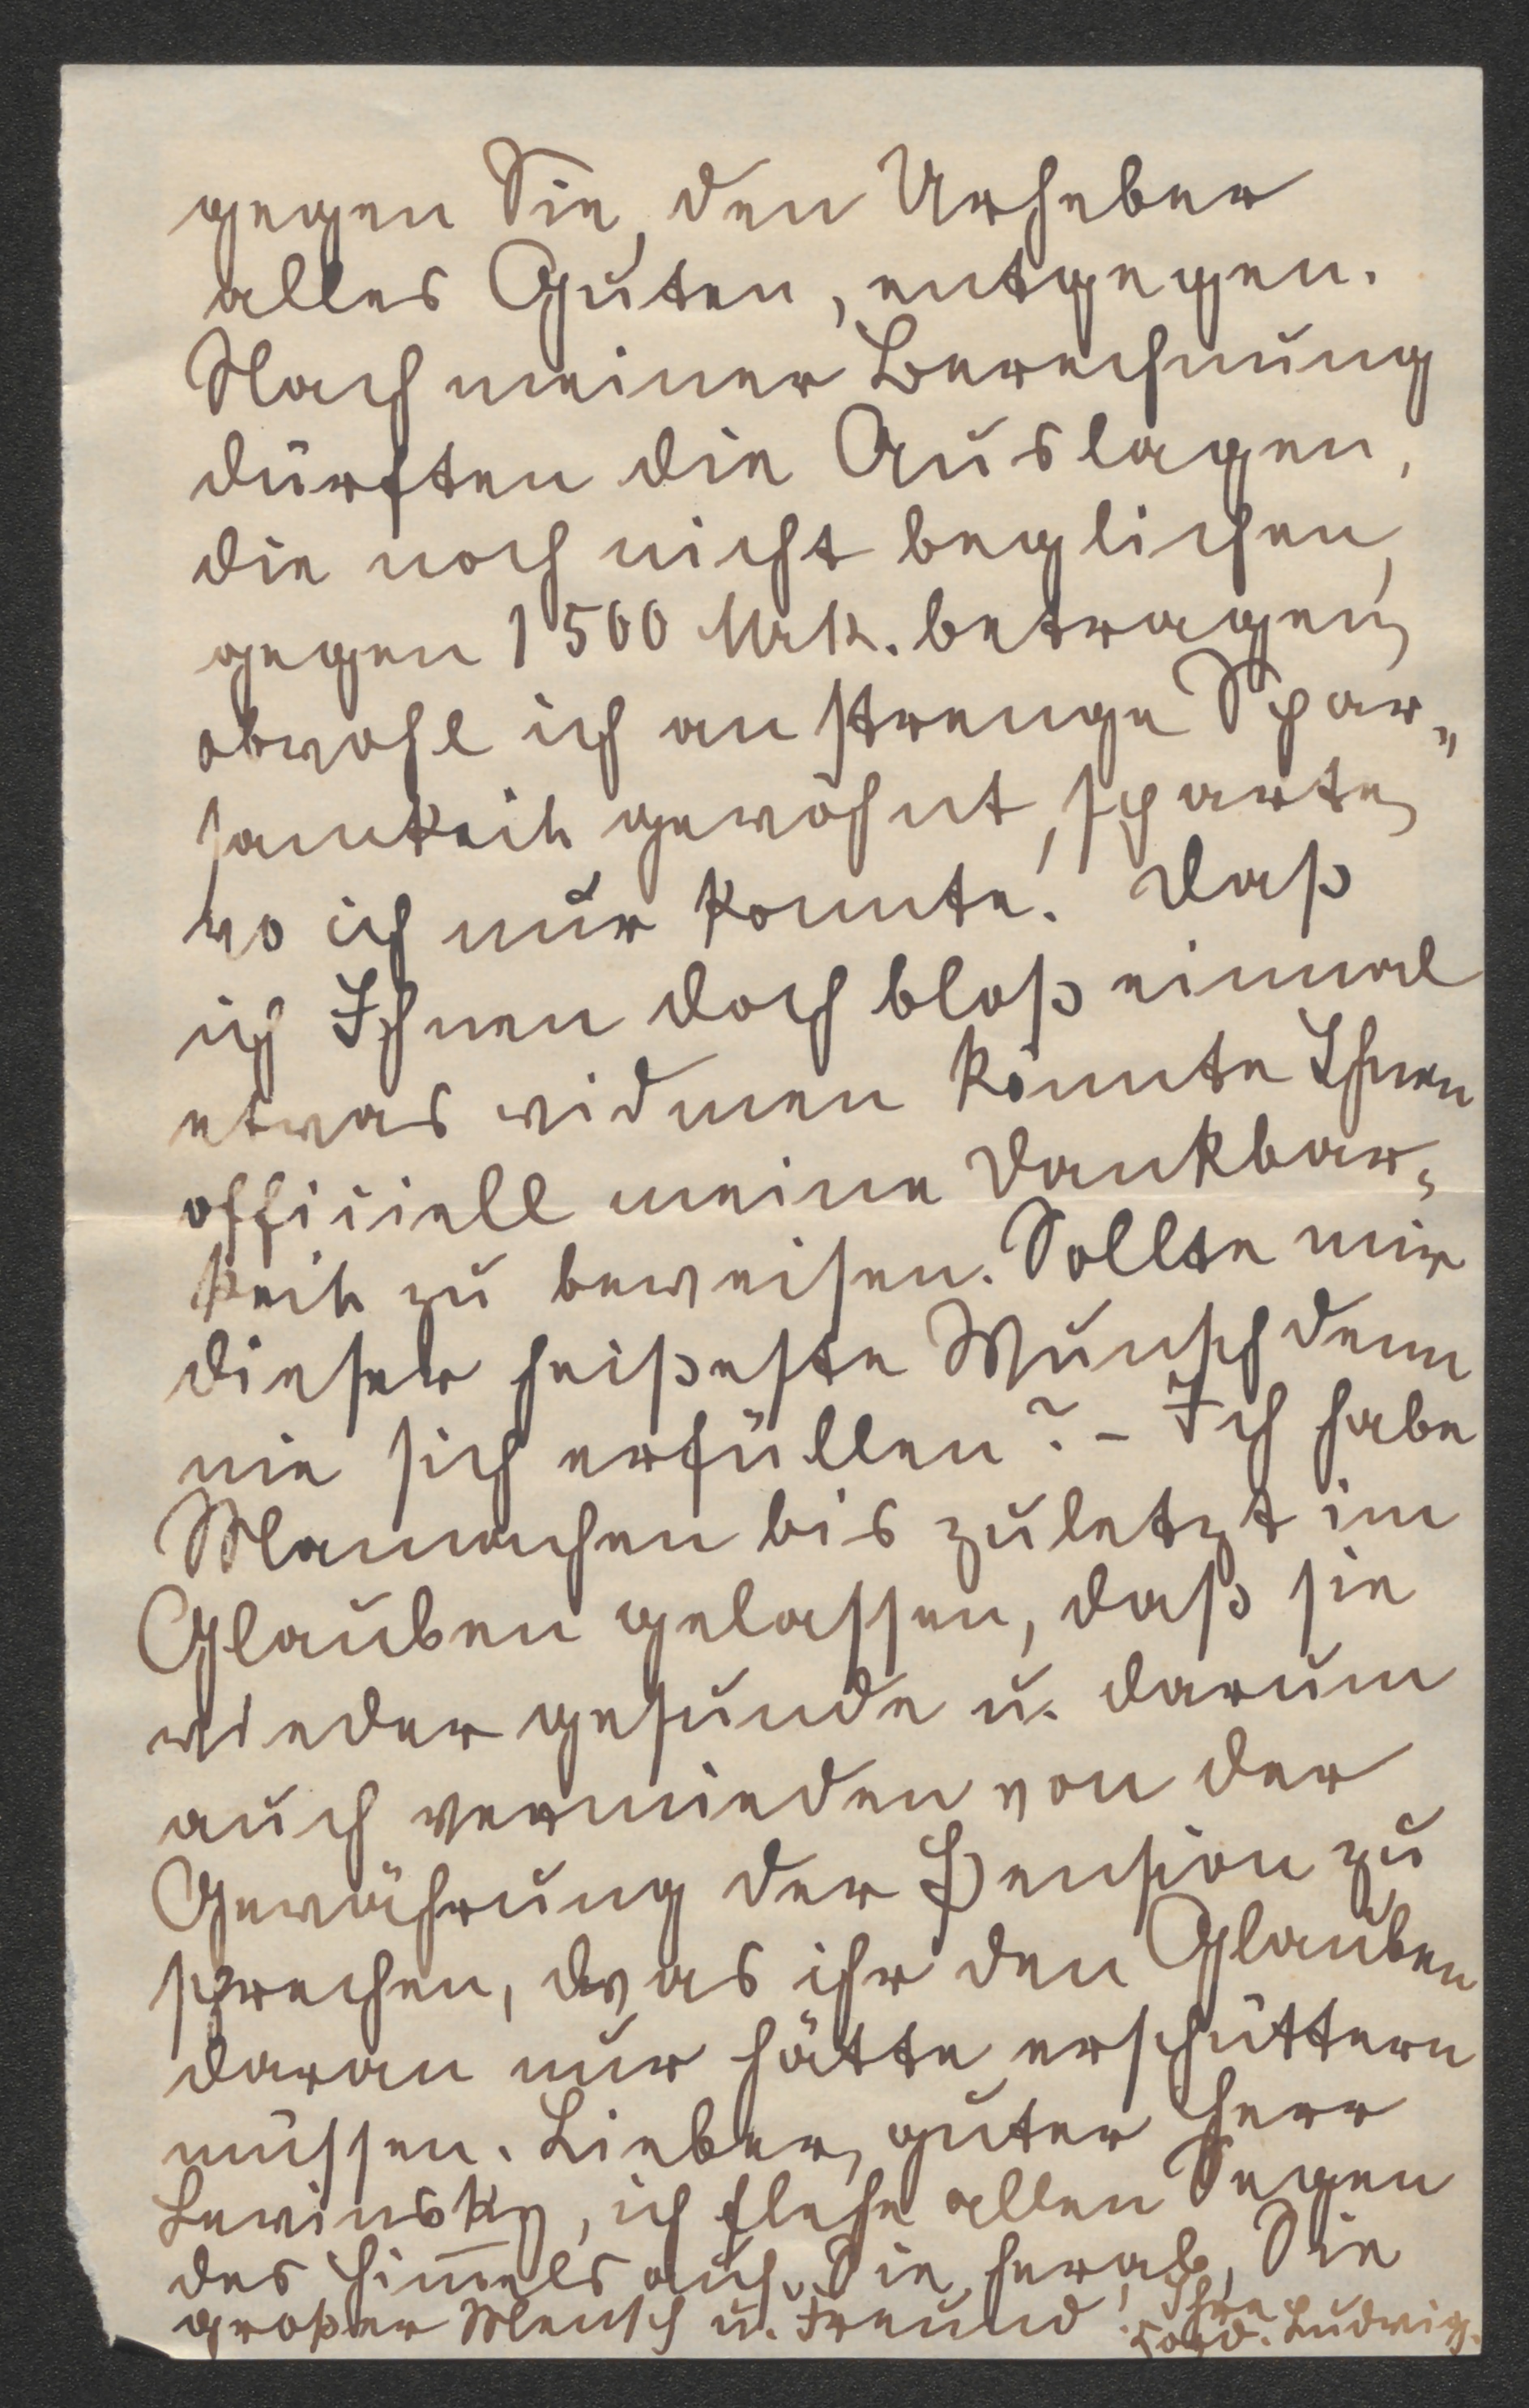 gegen Sie, den Urheber
alles Guten, entgegen.
Nach meiner Berechnung
dürften die Auslagen,
die noch nicht beglichen,
gegen 1500 Mrk. betragen,
obwohl ich an strenge Spar„
samkeit gewöhnt, sparte,
wo ich nur konnte! Daß
ich Ihnen doch bloß einmal
etwas widmen könnte Ihnen
officiell meine Dankbar„
keit zu beweisen. Sollte mir
dieser heißeste Wunsch denn
nie sich erfüllen? – Ich habe
Mamachen bis zuletzt im
Glauben gelassen, daß sie
wieder gesunde u. darum
auch vermieden von der
Gewährung der Pension zu
sprechen, was ihr den Glauben
daran nur hätte erschüttern
müssen. Lieber, guter Herr
Lewinsky, ich flehe allen Segen
des Him̅els auf Sie herab, Sie
großer Mensch u. Freund! Ihre
Ludwig.